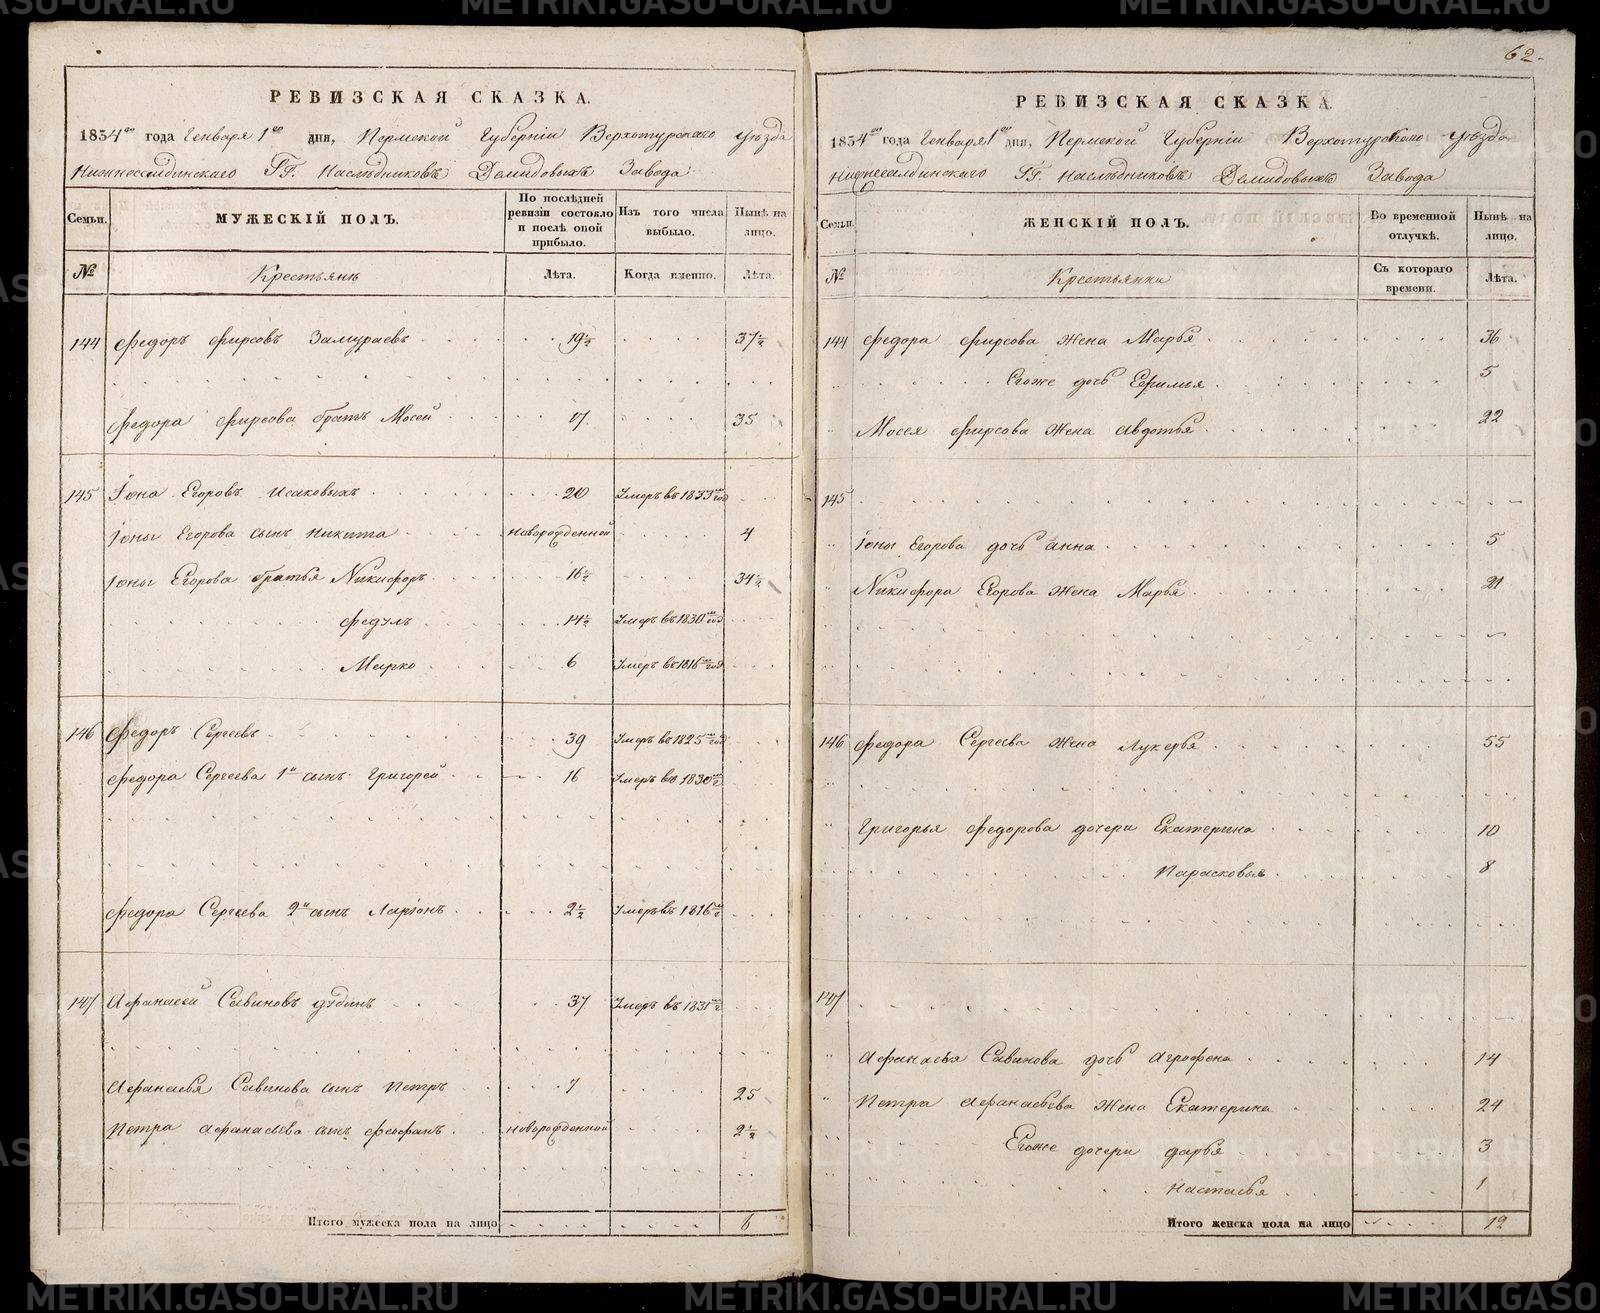 62.
РЕВИЗСКАЯ СКАЗКА.
1834го года Генваря 1го дня, Пермской Губерніи Верхотурскаго уѣзда
Нижнесалдинскаго ГГ. Наслѣдниковъ Демидовыхъ Завода
Семьи. МУЖЕСКІЙ ПОЛЪ. По послѣдней ревизіи состояло и послѣ оной прибыло. Изъ того числа выбыло. Нынѣ на лицо.
№ Крестьянъ Лѣта. Когда именно. Лѣта.
144 Федоръ Фирсовъ Замураевъ 19½ 37½
Федора Фирсова братъ Мосей 17 35
145 Іона Егоровъ Исаковыхъ 20 Умеръ въ 1833м год
Іоны Егорова сынъ Никита новорожденной 4
Іоны Егорова братья Никифоръ 16½ 34½
Федулъ 14½ Умеръ въ 1830м год
Марко 6 Умеръ въ 1816м год
146 Федоръ Сергеевъ 39 Умеръ въ 1825м год
Федора Сергеева 1й сынъ Григорей 16 Умеръ въ 1830м г
Федора Сергеева 2й сынъ Ларіонъ 2½ Умеръ въ 1816м г
147 Афанасей Савиновъ Дубинъ 37 Умеръ въ 1831м г
Афанасья Савинова сынъ Петръ 7 25
Петра Афанасьева сынъ Феофанъ новорожденной 2½
Итого мужеска пола на лицо 6
РЕВИЗСКАЯ СКАЗКА.
1834го года Генваря 1го дня, Пермской Губерніи Верхотурскаго уѣзда
Нижнесалдинскаго ГГ. Наслѣдниковъ Демидовыхъ Завода
Семьи. ЖЕНСКІЙ ПОЛЪ. Во временной отлучкѣ. Нынѣ на лицо.
№ Крестьянки Съ котораго времени. Лѣта.
144 Федора Фирсова жена Марья 36
Егоже дочь Ефимья 5
Мосея Фирсова жена Авдотья 22
145
Іоны Егорова дочь Анна 5
Никифора Егорова жена Марья 21
146 Федора Сергеева жена Лукерья 55
Григорья Федорова дочери Екатерина 10
Парасковья 8
147
Афанасья Савинова дочь Агрофена 14
Петра Афанасьева жена Екатерина 24
Егоже дочери Дарья 3
Настасья 1
Итого женска пола на лицо 12
METRIKI.GASO-URAL.RU